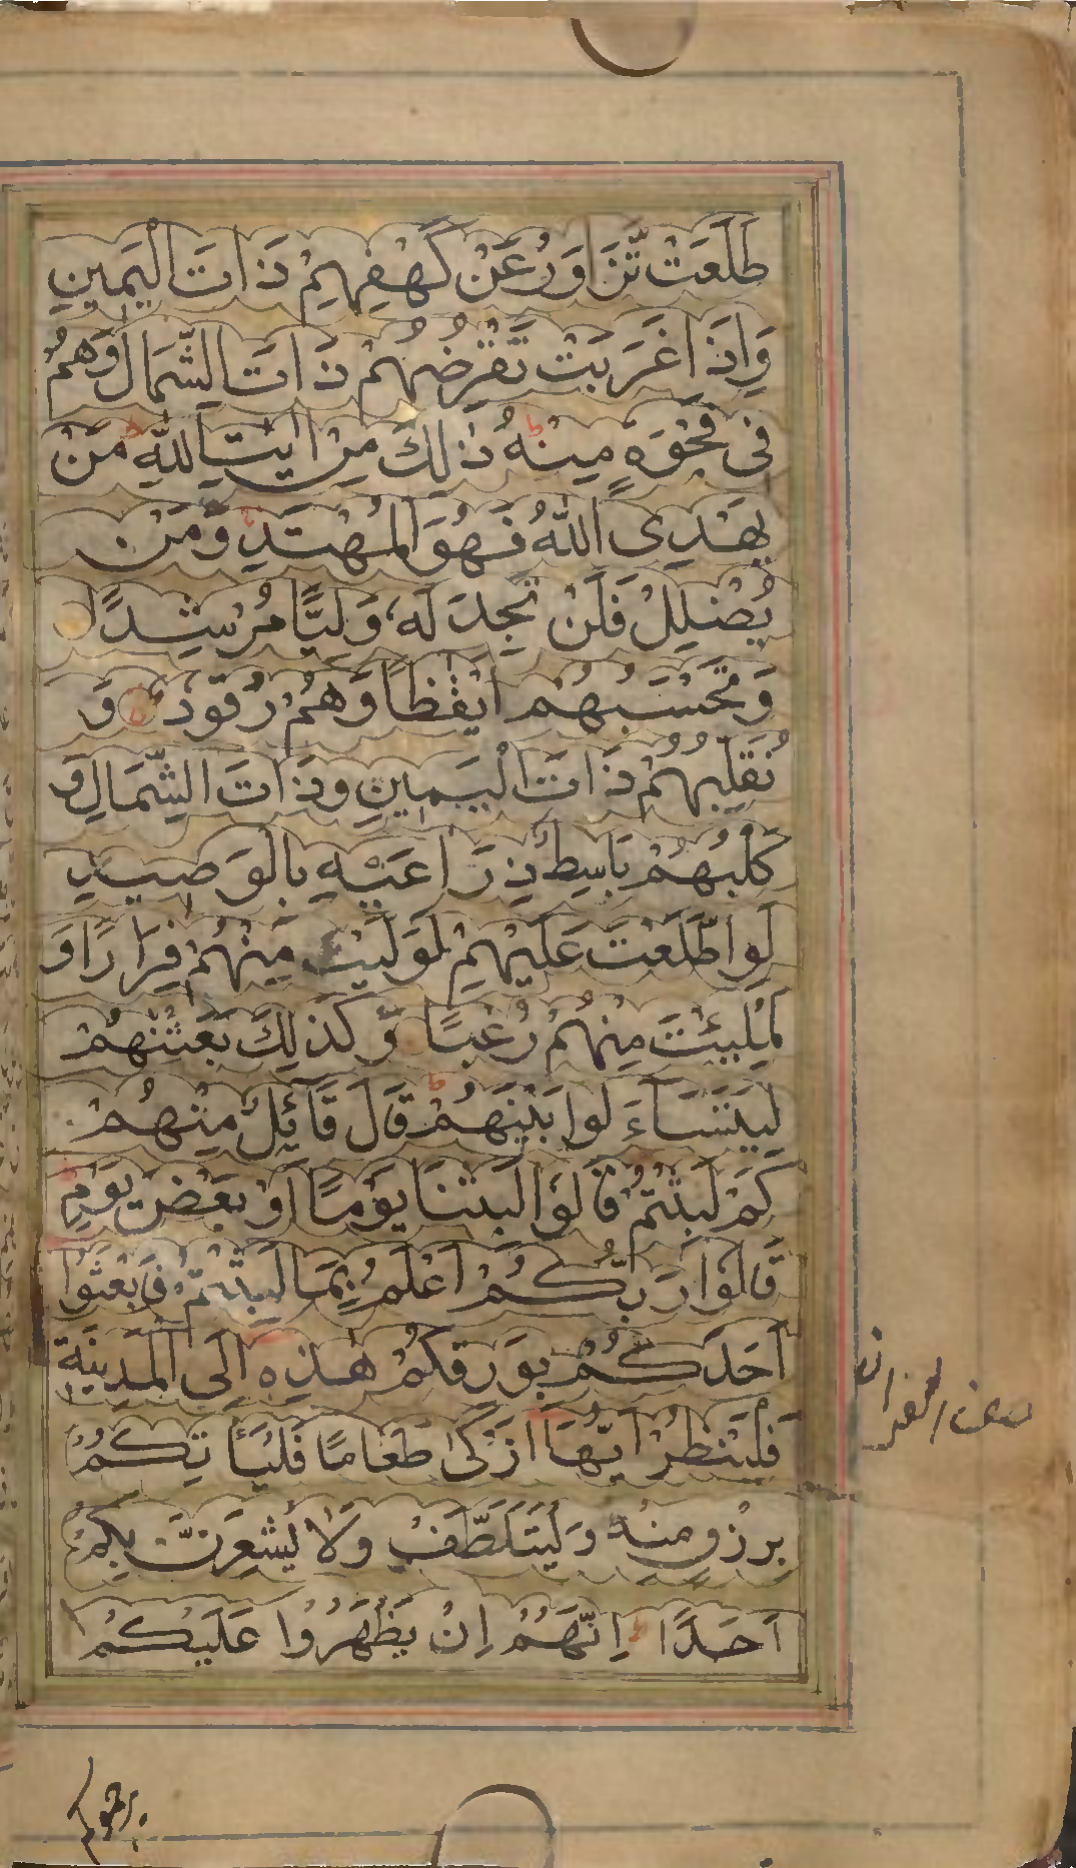 طَلَعَتْ تَّزٰوَرُ عَنْ كَهْفِهِمْ ذَاتَ الْيَمِينِ
وَاِذَا غَرَبَتْ تَّقْرِضُهُمْ ذَاتَ الشِّمَالِ وَهُمْ
فِى فَجْوَةٍ مِنْهُ ط ذٰلِكَ مِنْ اٰيٰتِ اللّٰهِ مَنْ
يَهْدِى اللّٰهُ فَهُوَ الْمُهْتَدِ وَمَنْ
يُضْلِلْ فَلَنْ تَجِدَ لَهٗ وَلِيًّا مُرْشِدًا
وَتَحْسَبُهُمْ اَيْقٰظًا وَهُمْ رُقُودٌ وَ
نُقَلِّبُهُمْ ذَاتَ الْيَمِينِ وَذَاتَ الشِّمَالِ وَ
كَلْبُهُمْ بَاسِطٌ ذِرَاعَيْهِ بِالْوَصِيدِ
لَوِ اطَّلَعْتَ عَلَيْهِمْ لَوَلَّيْتَ مِنْهُمْ فِرَارًا وَ
لَمُلِئْتَ مِنْهُمْ رُعْبًا وَّكَذٰلِكَ بَعَثْنٰهُمْ
لِيَتَسَآءَلُوا بَيْنَهُمْ ط قَالَ قَآئِلٌ مِنْهُمْ
كَمْ لَبِثْتُمْ قَالُوا لَبِثْنَا يَوْمًا اَوْ بَعْضَ يَوْمٍ
قَالُوا رَبُّكُمْ اَعْلَمُ بِمَا لَبِثْتُمْ فَابْعَثُوا
اَحَدَكُمْ بِوَرِقِكُمْ هٰذِهِ اِلَى الْمَدِينَةِ
فَلْيَنْظُرْ اَيُّهَا اَزْكٰى طَعَامًا فَلْيَأْتِكُمْ
بِرِزْقٍ مِنْهُ وَلْيَتَلَطَّفْ وَلَا يُشْعِرَنَّ بِكُمْ
اَحَدًا ط اِنَّهُمْ اِنْ يَظْهَرُوا عَلَيْكُمْ
يرجموكم